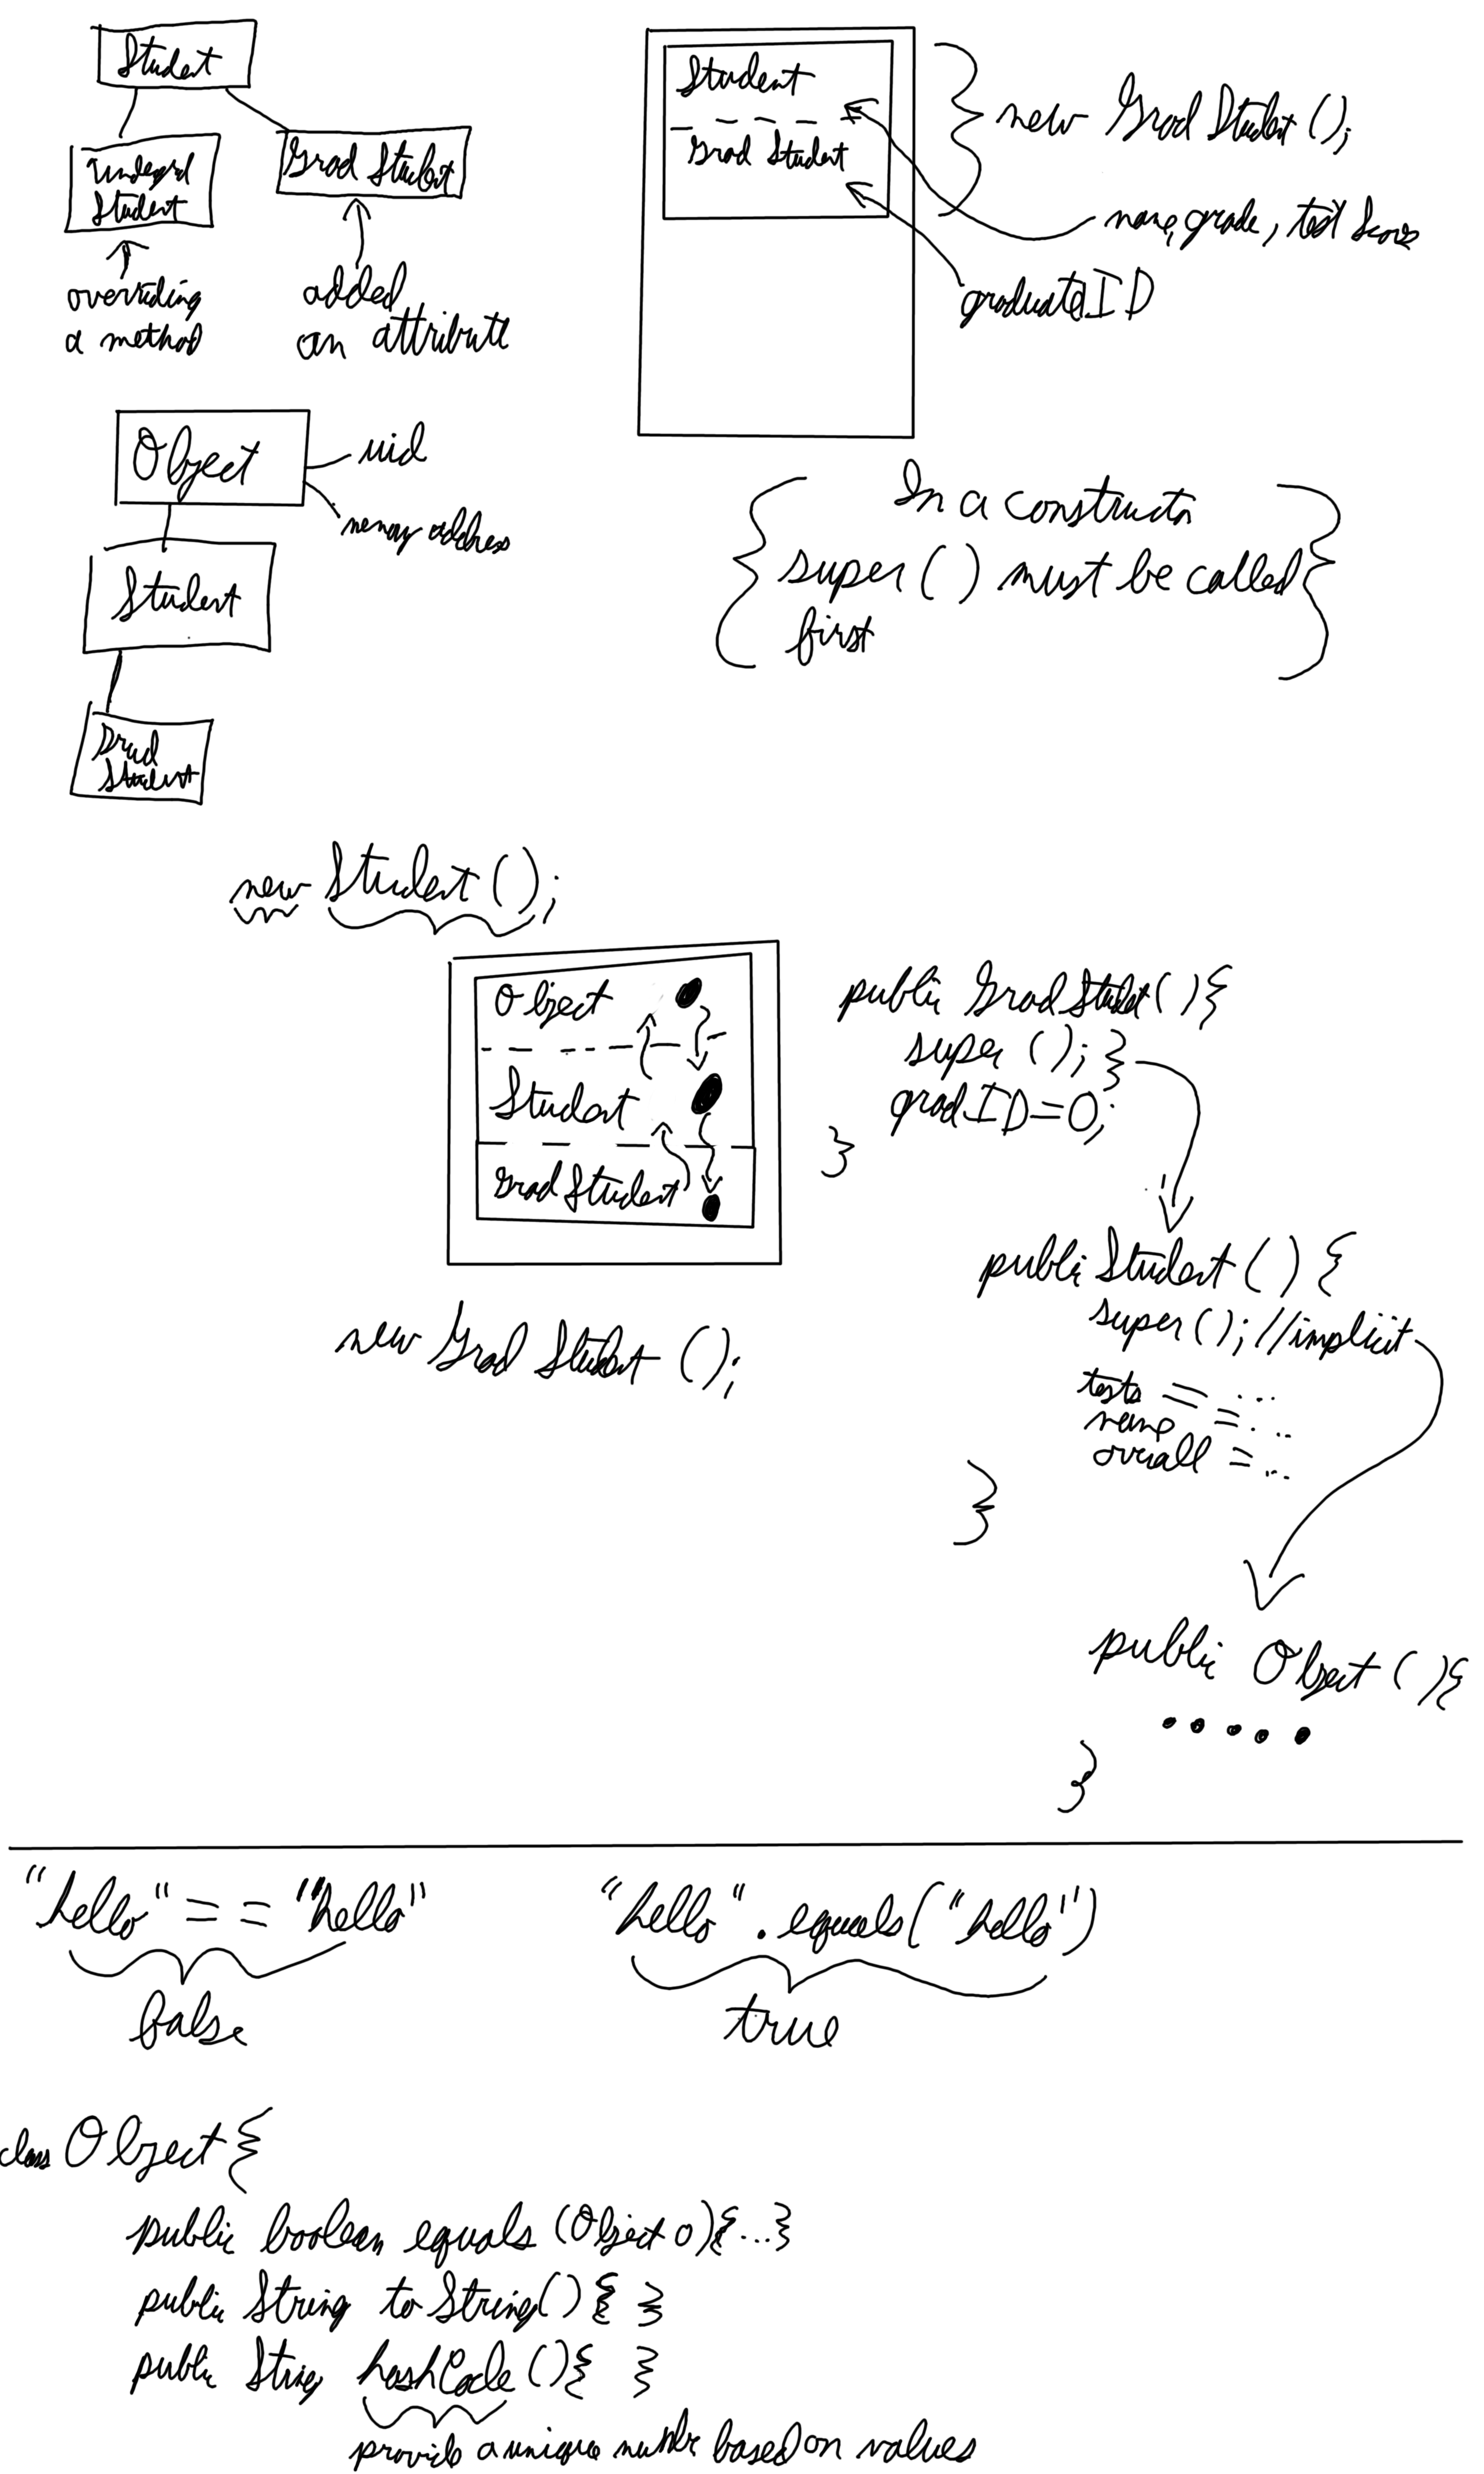 Student
Undergrd
Student
Grad Student
overriding
a method
added
an attribute
Student
Grad Student
new Grad Student ();
name, grade, test scores
graduateID
Object
uid
memory address
Student
Grad
Student
In a constructor
super () must be called
first
new Student ();
Object
Student
Grad Student
new Grad Student ();
public Grad Student () {
super (); }
gradID = 0;
}
public Student () {
super (); //implicit
tests = ...
name = ...
overall = ...
}
public Object () {
.....
}
"hello" == "hello"
false
"hello".equals("hello")
true
class Object {
public boolean equals (Object o) {...}
public String toString() { }
public String hashCode () { }
provide a unique number based on values